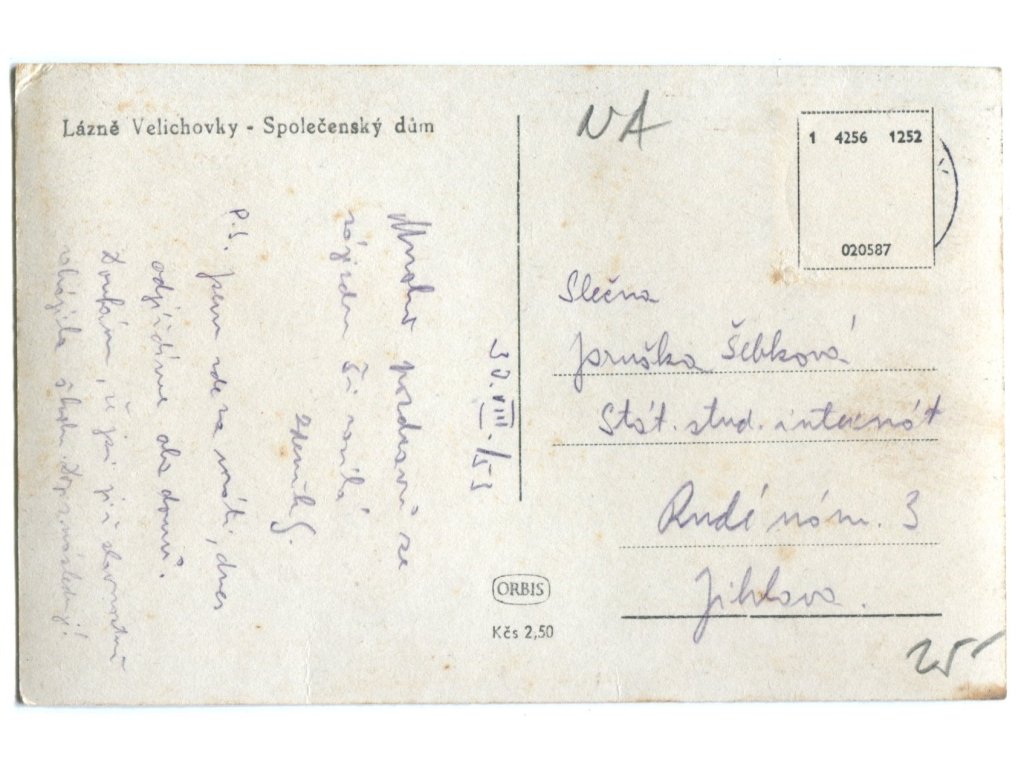 Lázně Velichovky - Společenský dům
NA
1 4256 1252
020587
30.VIII./53
Mnoho pozdravů ze
zájezdu Ti zasílá
Zdeněk S.
P.S. jsem zde na, dnes
odjíždíme do domů.
Doufám, že jsi již slavnostně
školu.
Slečna
Jaruška Šebková
Stát. stud. internát
Rudé nám. 3
Jihlava.
ORBIS
Kčs 2,50
25